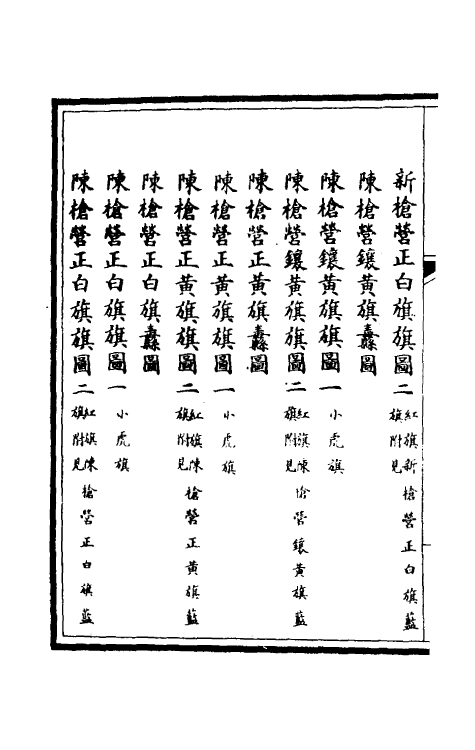 新槍營正白旗旗圖二 紅旗新槍營正白旗藍旗附見
陳槍營鑲黃旗纛圖
陳槍營鑲黃旗旗圖一 小虎旗
陳槍營鑲黃旗旗圖二 紅旗陳槍營鑲黃旗藍旗附見
陳槍營正黃旗纛圖
陳槍營正黃旗旗圖一 小虎旗
陳槍營正黃旗旗圖二 紅旗陳槍營正黃旗藍旗附見
陳槍營正白旗纛圖
陳槍營正白旗旗圖一 小虎旗
陳槍營正白旗旗圖二 紅旗陳槍營正白旗藍旗附見